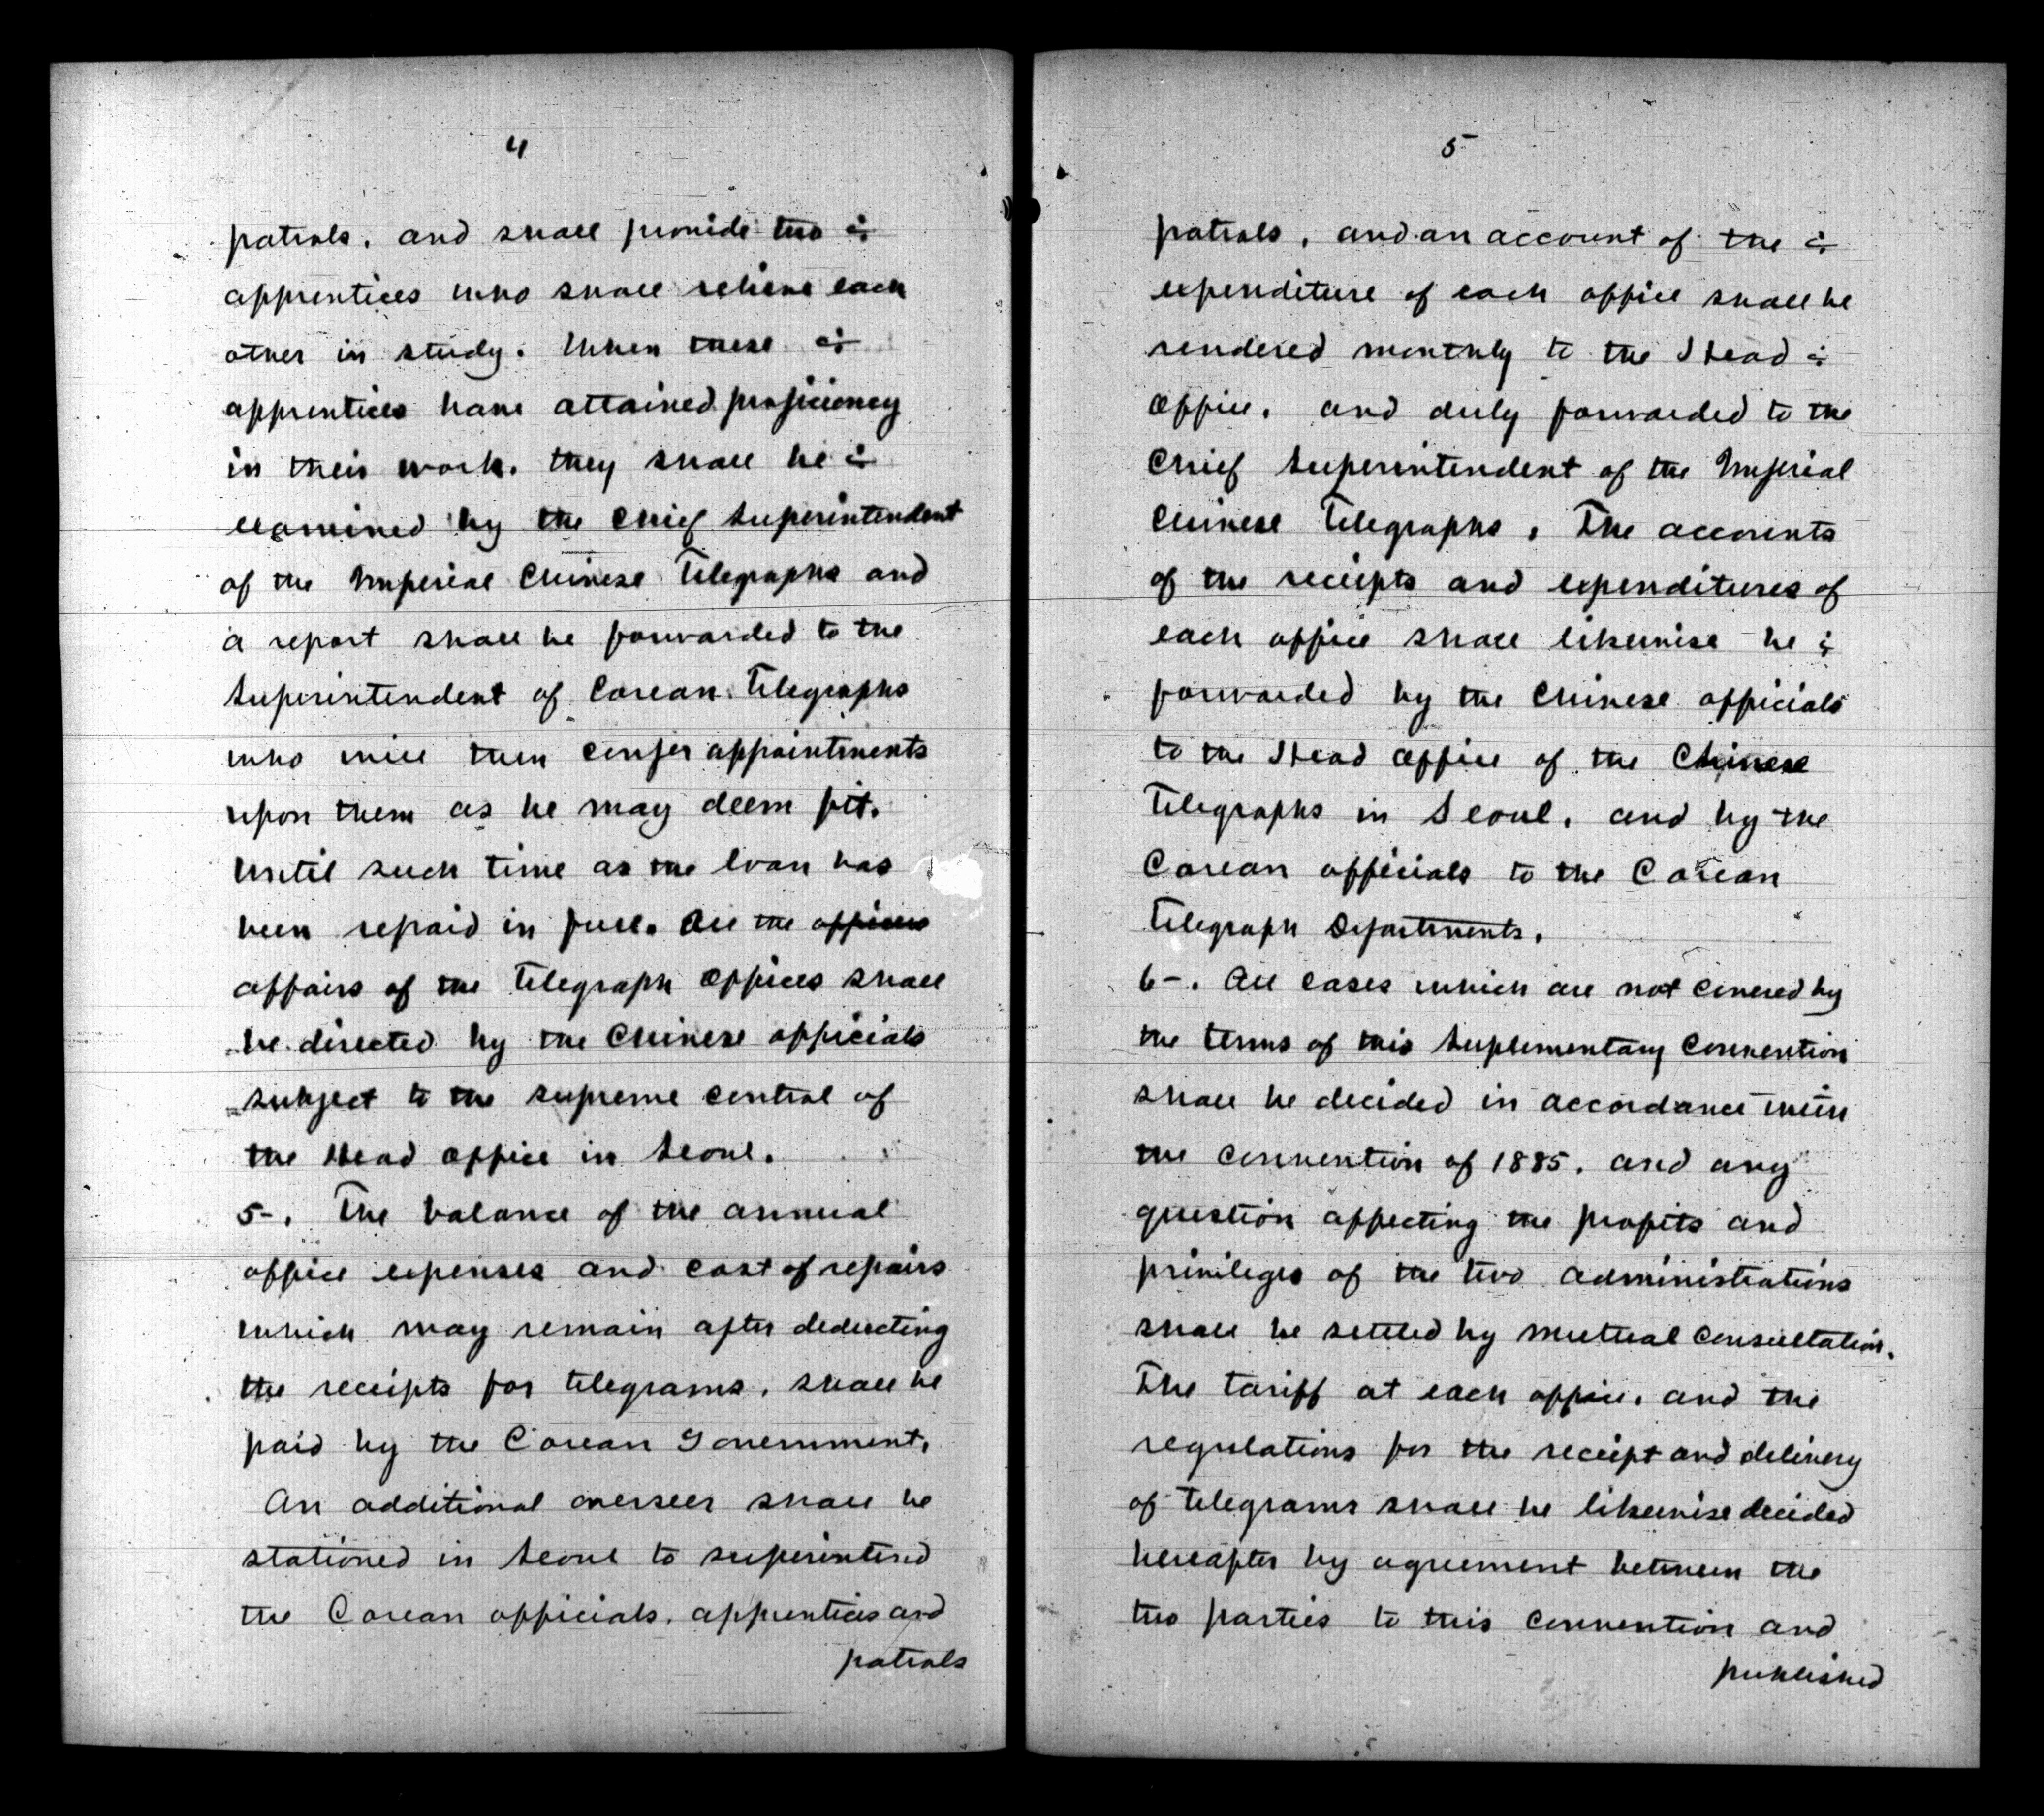 4
patrols, and shall provide two ÷
apprentices who shall relieve each
other in study. When these ÷
apprentices have attained proficiency
in their work, they shall be ÷
examined by the Chief Superintendent
of the Imperial Chinese Telegraphs and
a report shall be forwarded to the
Superintendent of Corean Telegraphs
who will then confer appointments
upon them as he may deem fit.
Until such time as the loan has
been repaid in full. All the offices
affairs of the Telegraph Offices shall
be directed by the Chinese officials
subject to the supreme control of
the Head Office in Seoul.
5-. The balance of the annual
office expenses and cost of repairs
which may remain after deducting
the receipts for telegrams, shall be
paid by the Corean Government.
An additional overseer shall be
stationed in Seoul to superintend
the Corean officials, apprentices and
patrols
5
patrols, and an account of the ÷
expenditure of each office shall be
rendered monthly to the Head ÷
Office, and duly forwarded to the
Chief Superintendent of the Imperial
Chinese Telegraphs. The accounts
of the receipts and expenditures of
each office shall likewise be ÷
forwarded by the Chinese officials
to the Head Office of the Chinese
Telegraphs in Seoul, and by the
Corean officials to the Corean
Telegraph Departments.
6-. All cases which are not covered by
the terms of this Suplementary Convention
shall be decided in accordance with
the Convention of 1885, and any
question affecting the profits and
privileges of the two Administrations
shall be settled by mutual consultation.
The tariff at each office, and the
regulations for the receipt and delivery
of telegrams shall be likewise decided
hereafter by agreement between the
two parties to this Convention and
published